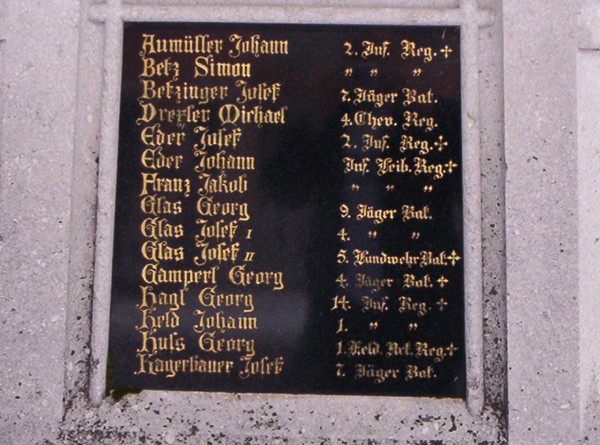 Aumüller Johann 2. Inf. Reg. ✝
Betz Simon " " "
Betzinger Josef 7. Jäger Bat.
Drexler Michael 4. Chev. Reg.
Eder Josef 2. Inf. Reg. ✝
Eder Johann Inf. Leib. Reg. ✝
Franz Jakob " " "
Glas Georg 9. Jäger Bat.
Glas Josef I 4. " "
Glas Josef II 5. Landwehr Bat. ✝
Gamperl Georg 4. Jäger Bat. ✝
Hagl Georg 14. Inf. Reg. ✝
Held Johann 1. " "
Huss Georg 1. Feld. Art. Reg. ✝
Hagerbauer Josef 7. Jäger Bat.